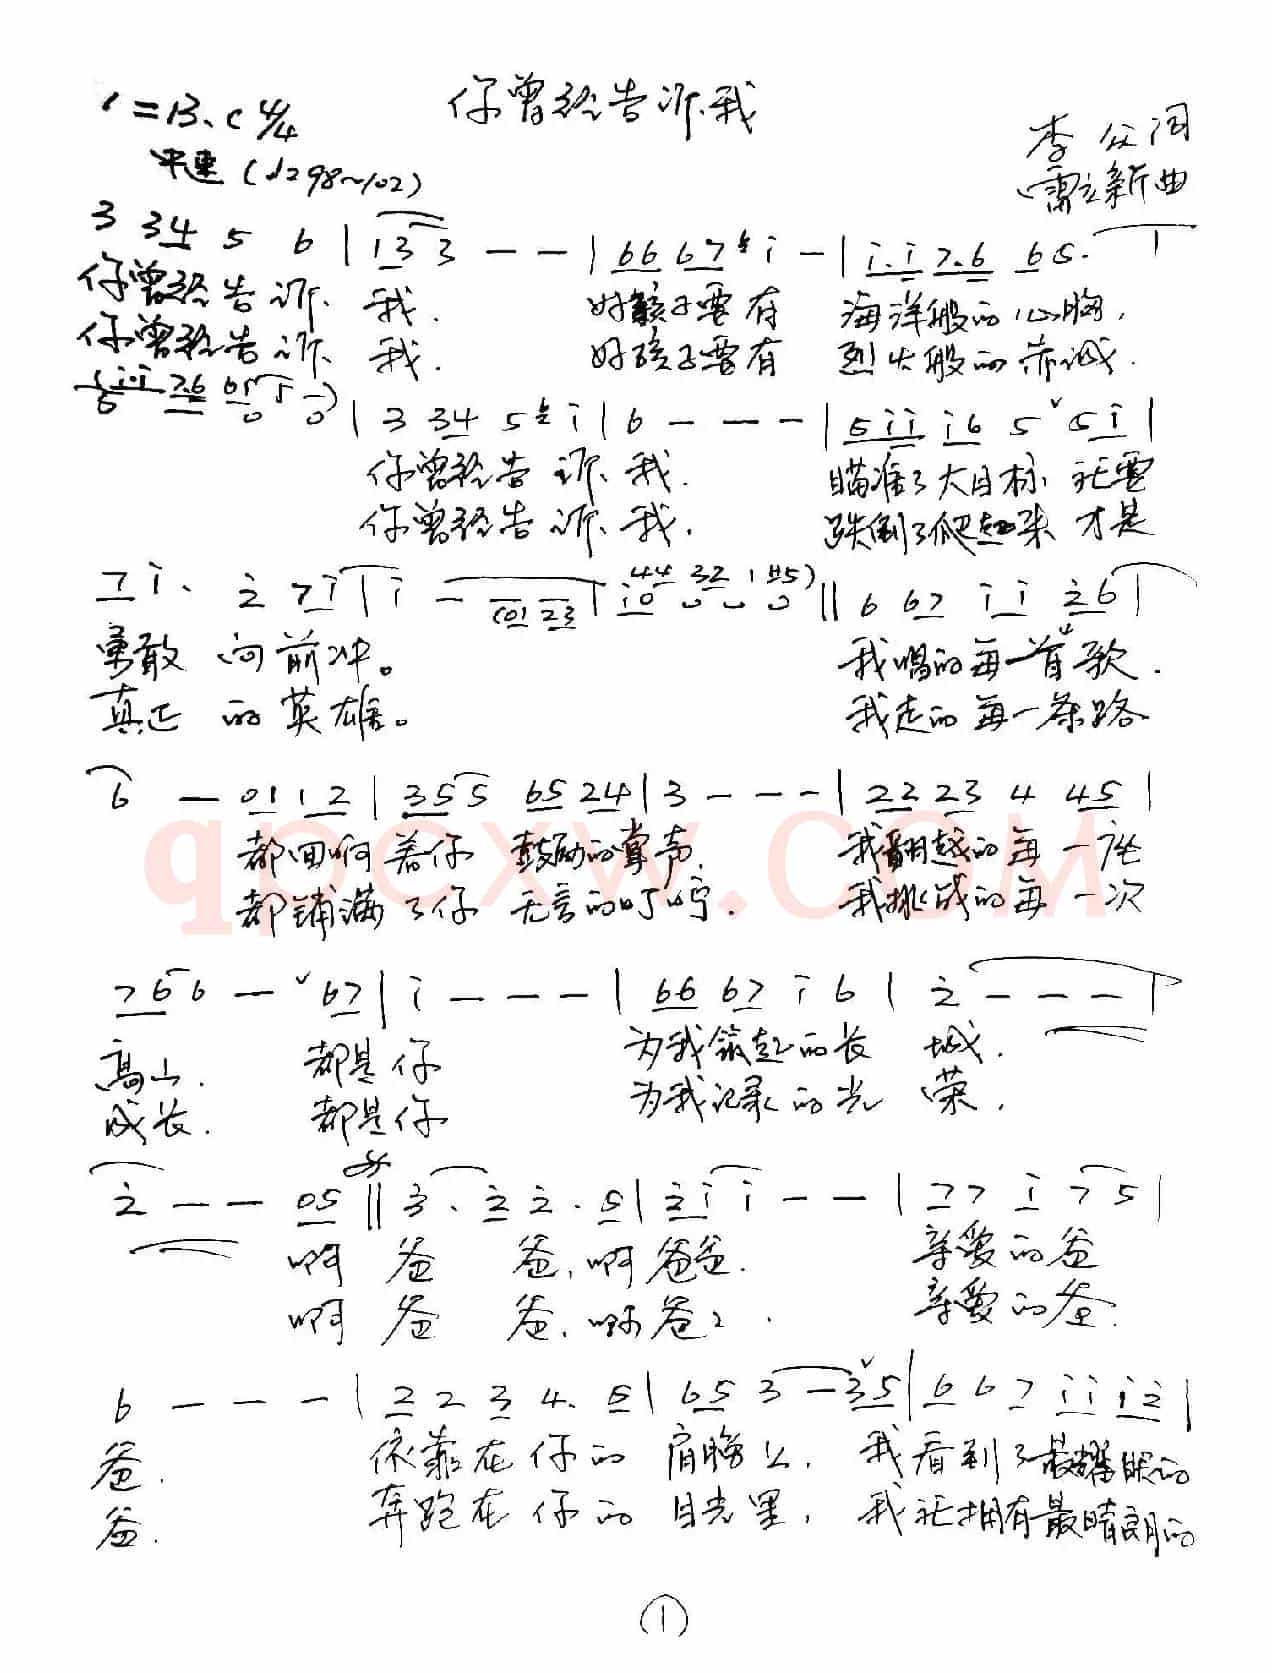 你曾经告诉我
1=B、C 4/4
中速(♩=98~102)
李众词
雷立新曲
3 34 5 6 | 13 3 - - | 66 67 i - | i.i 7.6 65. |
你曾经告诉 我. 好孩子要有 海洋般的心胸,
你曾经告诉 我. 好孩子要有 烈火般的赤诚.
(i.i 7.6 65 5 -)
| 3 34 5 i | 6 - - - | 5i i i6 5 5i |
你曾经告诉 我. 瞄准了大目标 就要
你曾经告诉 我. 跌倒了爬起来 才是
7i. 2 7i | i - (01 23 | i0 44 32 1 #5) || 6 67 i i 26 |
勇敢 向前冲。 我唱的每一首歌.
真正 的英雄。 我走的每一条路
6 - 011 2 | 355 65 24 | 3 - - - | 22 23 4 45 |
都回响着你 鼓励的掌声. 我翻越的每一座
都铺满了你 无言的叮咛. 我挑战的每一次
766 - 67 | i - - - | 66 67 i 6 | 2 - - - |
高山. 都是你 为我筑起的长 城.
成长. 都是你 为我记录的光 荣.
2 - - 05 || 3. 2 2. 5 | 2i i - - | 77 i 75 |
啊 爸 爸,啊爸爸. 亲爱的爸
啊 爸 爸,啊爸爸. 亲爱的爸
6 - - - | 2 2 3 4. 5 | 65 3 - 35 | 6 6 7 i i i 2 |
爸. 依靠在你的 肩膀上, 我看到了最耀眼的
爸. 奔跑在你的 目光里, 我就拥有最晴朗的
1
qpcxw.com